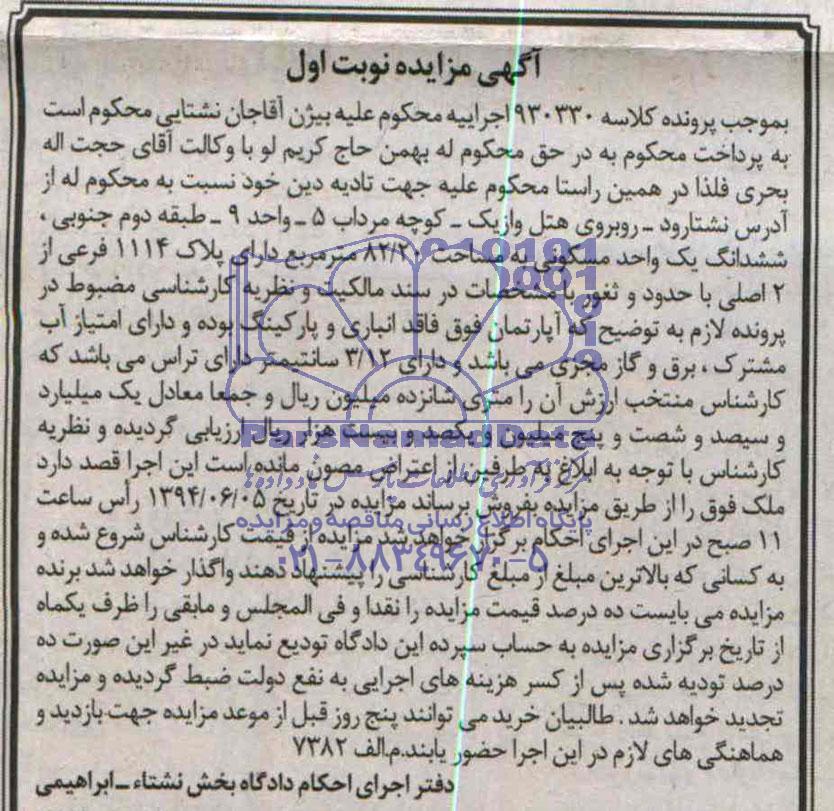 آگهی مزایده نوبت اول
بموجب پرونده کلاسه ۹۳۰۳۳۰ اجراییه محکوم علیه بیژن آقاجان نشتایی محکوم است
به پرداخت محکوم به در حق محکوم له بهمن حاج کریم لو با وکالت آقای حجت اله
بحری فلذا در همین راستا محکوم علیه جهت تادیه دین خود نسبت به محکوم له از
آدرس نشتارود ـ روبروی هتل وازیک ـ کوچه مرداب ۵ ـ واحد ۹ ـ طبقه دوم جنوبی ،
ششدانگ یک واحد مسکونی به مساحت ۸۲/۲۰ مترمربع دارای پلاک ۱۱۱۴ فرعی از
۲ اصلی با حدود و ثغور با مشخصات در سند مالکیت و نظریه کارشناسی مضبوط در
پرونده لازم به توضیح که آپارتمان فوق فاقد انباری و پارکینگ بوده و دارای امتیاز آب
مشترک ، برق و گاز مجزی می باشد و دارای ۳/۱۲ سانتیمتر دارای تراس می باشد که
کارشناس منتخب ارزش آن را متری شانزده میلیون ریال و جمعا معادل یک میلیارد
و سیصد و شصت و پنج میلیون و یکصد و بیست هزار ریال ارزیابی گردیده و نظریه
کارشناس با توجه به ابلاغ به طرفین از اعتراض مصون مانده است این اجرا قصد دارد
ملک فوق را از طریق مزایده بفروش برساند مزایده در تاریخ ۱۳۹۴/۰۶/۰۵ رأس ساعت
۱۱ صبح در این اجرای احکام برگزار خواهد شد مزایده از قیمت کارشناس شروع شده و
به کسانی که بالاترین مبلغ از مبلغ کارشناسی را پیشنهاد دهند واگذار خواهد شد برنده
مزایده می بایست ده درصد قیمت مزایده را نقدا و فی المجلس و مابقی را ظرف یکماه
از تاریخ برگزاری مزایده به حساب سپرده این دادگاه تودیع نماید در غیر این صورت ده
درصد تودیه شده پس از کسر هزینه های اجرایی به نفع دولت ضبط گردیده و مزایده
تجدید خواهد شد . طالبیان خرید می توانند پنج روز قبل از موعد مزایده جهت بازدید و
هماهنگی های لازم در این اجرا حضور یابند.م.الف ۷۳۸۲
دفتر اجرای احکام دادگاه بخش نشتاء ـ ابراهیمی
ParsNamadData
پایگاه اطلاع رسانی مناقصه و مزایده
۰۲۱-۸۸۳۴۹۶۷۰-۵